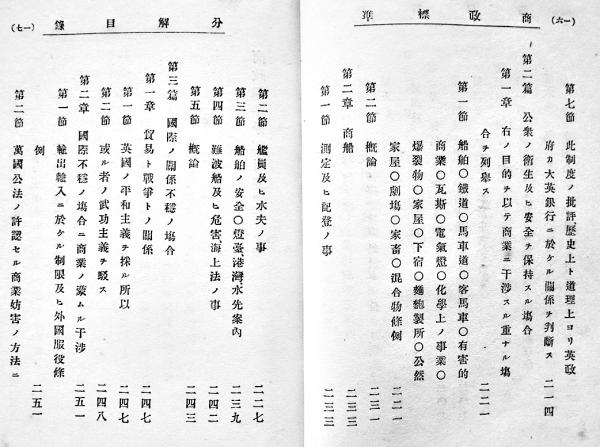 商政標準 (一六)
第七節 此制度ノ批評歷史上ト道理上ヨリ英政
府カ大英銀行ニ於ケル關係ヲ判斷ス 二一四
第二篇 公衆ノ衛生及ヒ安全ヲ保持スル塲合
第一章 右ノ目的ヲ以テ商業ニ干渉スル重ナル塲
合ヲ列舉ス 二二一
第一節 船舶〇鐵道〇馬車道〇客馬車〇有害的
商業〇瓦斯〇電氣燈〇化學上ノ事業〇
爆裂物〇家屋〇下宿〇麵麭製所〇公然
家屋〇劇塲〇家畜〇混合物條例 二二一
第二節 概論 二三一
第二章 商船 二三三
第一節 測定及ヒ記登ノ事 二三三
分解目錄 (一七)
第二節 艦員及ヒ水夫ノ事 二二七
第三節 船舶ノ安全〇燈臺、港灣、水先案內 二三九
第四節 難波船及ヒ危害、海上法ノ事 二四二
第五節 概論 二四三
第三篇 國際ノ關係不穩ノ塲合
第一章 貿易ト戰爭トノ關係 二四七
第一節 英國ノ平和主義ヲ採ル所以 二四七
第二節 或ル者ノ武功主義ヲ駁ス 二四八
第二章 國際不穩ノ塲合ニ商業ノ蒙ムル干渉 二五一
第一節 輸出輸入ニ於ケル制限及ヒ外國服役條
例 二五一
第二節 萬國公法ノ許認セル商業妨害ノ方法ニ